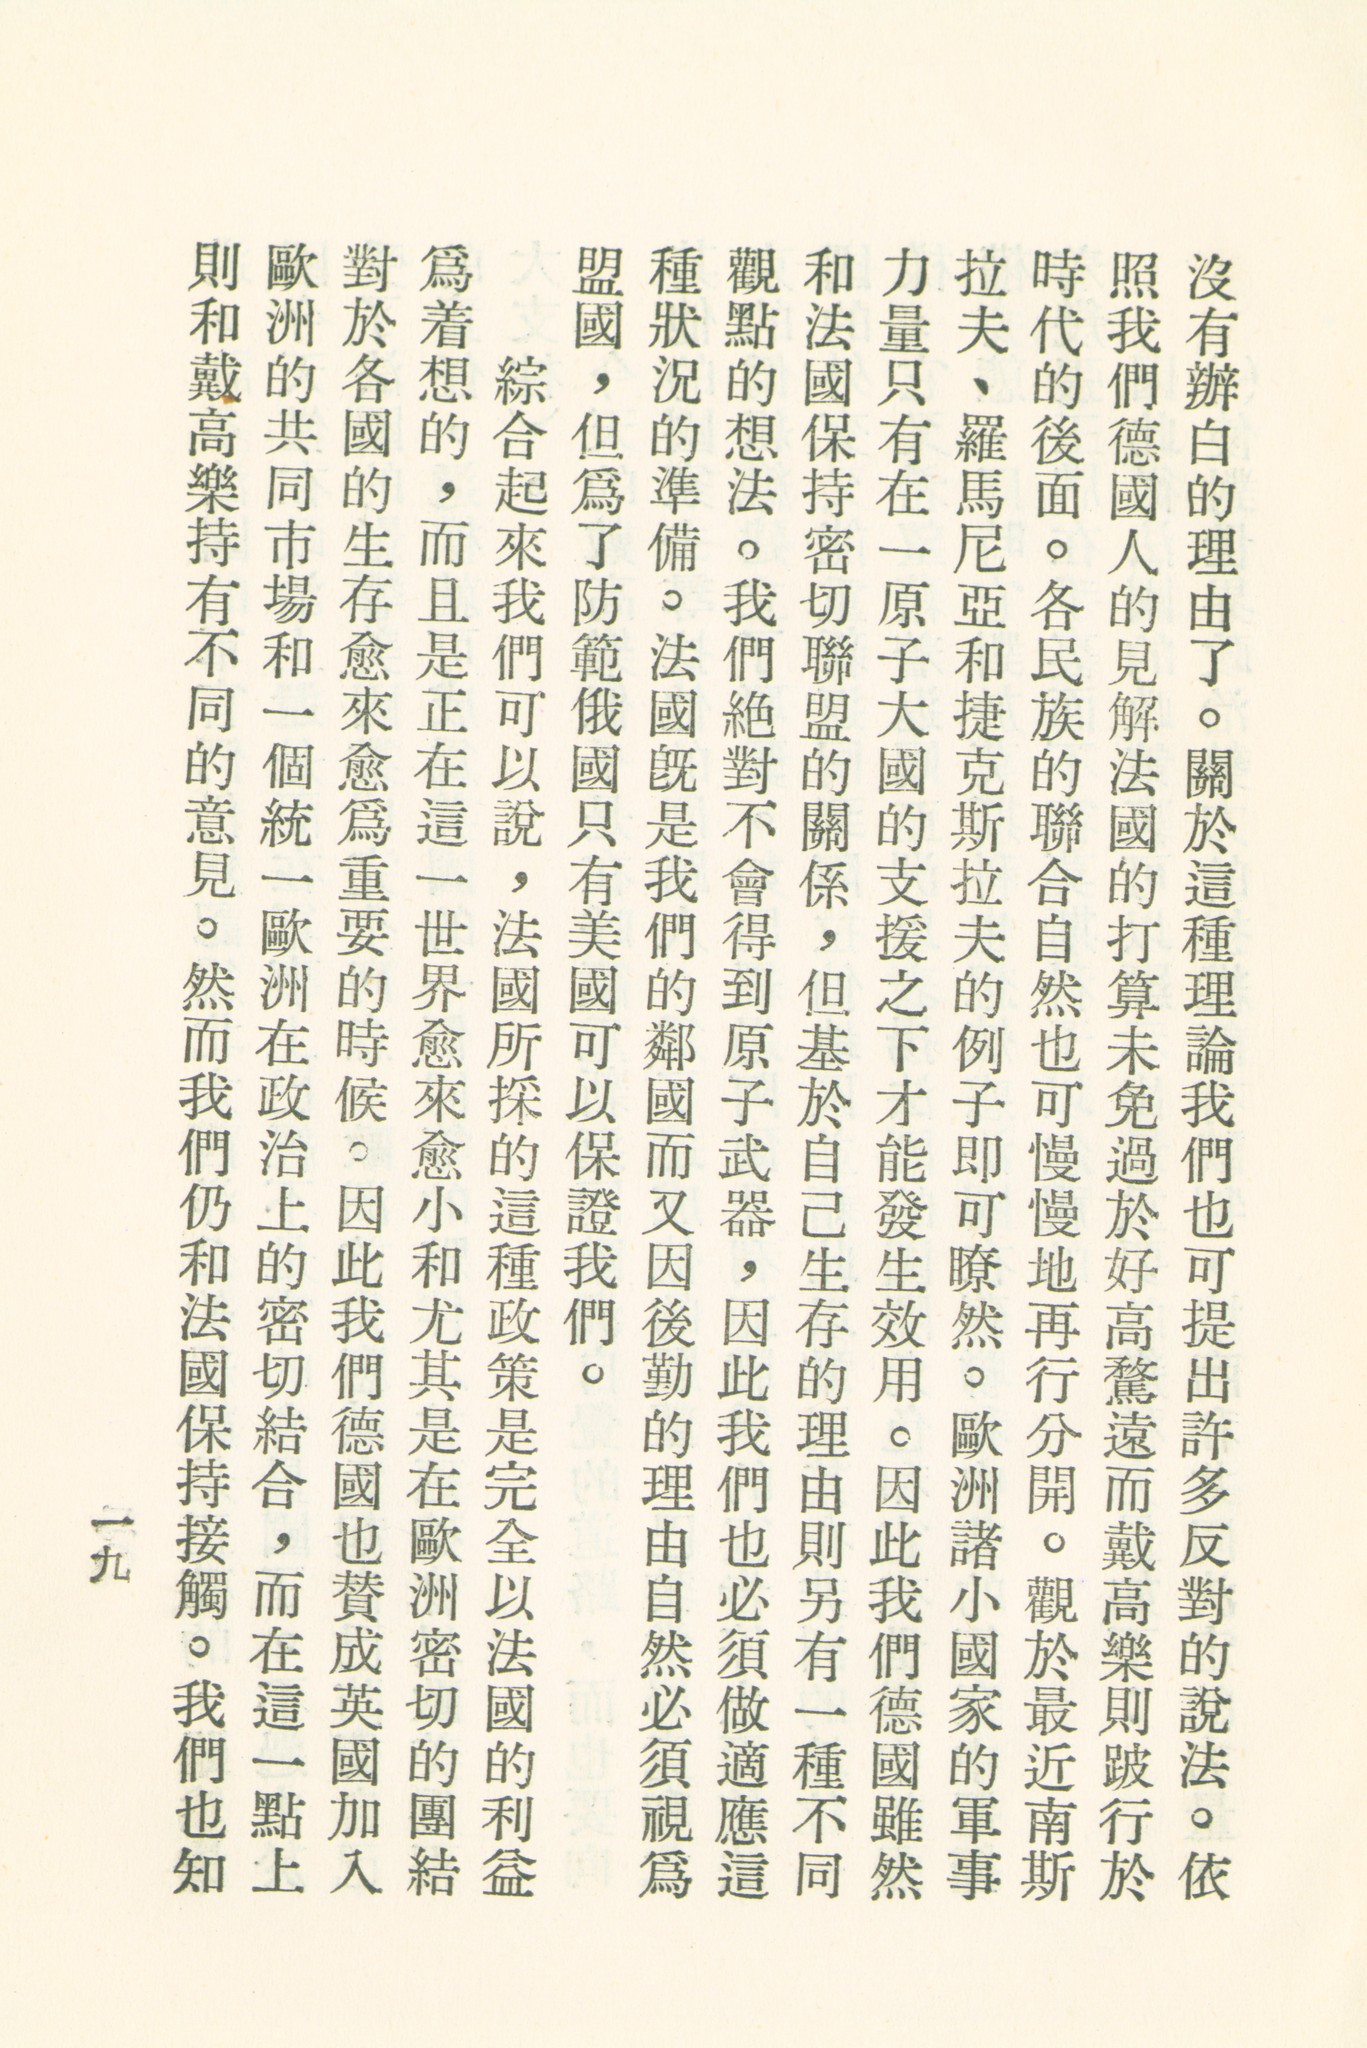 沒有辦白的理由了。關於這種理論我們也可提出許多反對的說法。依
照我們德國人的見解法國的打算未免過於好高騖遠而戴高樂則跛行於
時代的後面。各民族的聯合自然也可慢慢地再行分開。觀於最近南斯
拉夫、羅馬尼亞和捷克斯拉夫的例子即可瞭然。歐洲諸小國家的軍事
力量只有在一原子大國的支援之下才能發生效用。因此我們德國雖然
和法國保持密切聯盟的關係，但基於自己生存的理由則另有一種不同
觀點的想法。我們絶對不會得到原子武器，因此我們也必須做適應這
種狀況的準備。法國旣是我們的鄰國而又因後勤的理由自然必須視爲
盟國，但爲了防範俄國只有美國可以保證我們。
綜合起來我們可以說，法國所採的這種政策是完全以法國的利益
爲着想的，而且是正在這一世界愈來愈小和尤其是在歐洲密切的團結
對於各國的生存愈來愈爲重要的時候。因此我們德國也賛成英國加入
歐洲的共同市場和一個統一歐洲在政治上的密切結合，而在這一點上
則和戴高樂持有不同的意見。然而我們仍和法國保持接觸。我們也知
一九